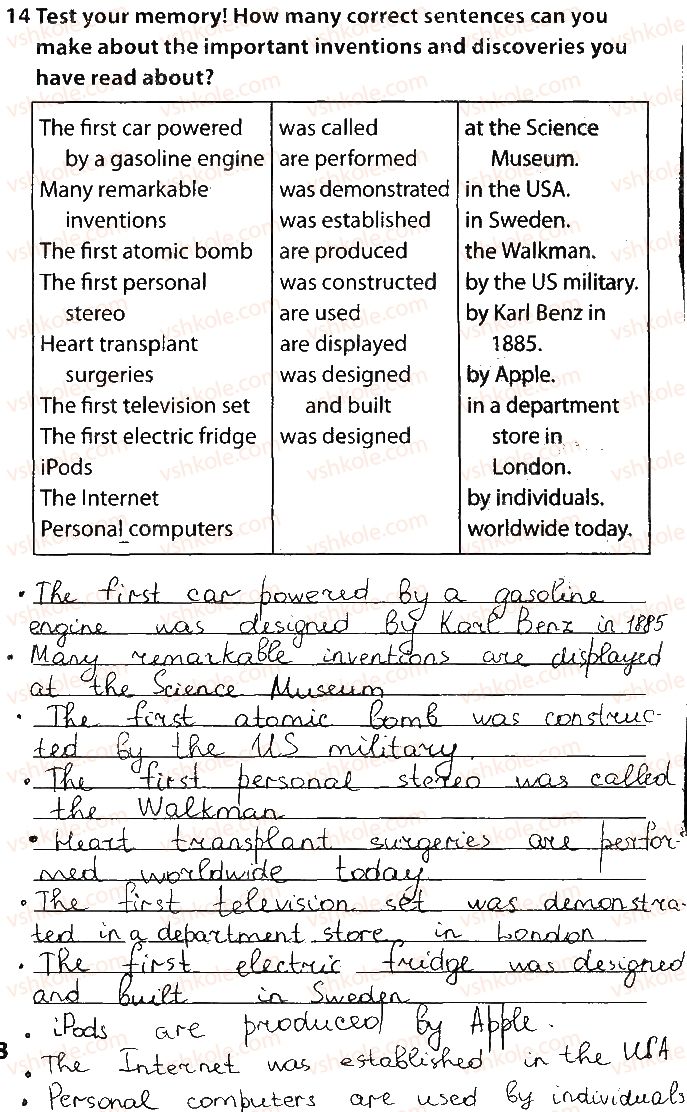 14 Test your memory! How many correct sentences can you
make about the important inventions and discoveries you
have read about?
The first car powered
by a gasoline engine
Many remarkable
inventions
The first atomic bomb
The first personal
stereo
Heart transplant
surgeries
The first television set
The first electric fridge
iPods
The Internet
Personal computers
was called
are performed
was demonstrated
was established
are produced
was constructed
are used
are displayed
was designed
and built
was designed
at the Science
Museum.
in the USA.
in Sweden.
the Walkman.
by the US military.
by Karl Benz in
1885.
by Apple.
in a department
store in
London.
by individuals.
worldwide today.
• The first car powered by a gasoline
engine was designed by Karl Benz in 1885
• Many remarkable inventions are displayed
at the Science Museum
• The first atomic bomb was construc-
ted by the US military.
• The first personal stereo was called
the Walkman
• Heart transplant surgeries are perfor-
med worldwide today
• The first television set was demonstra-
ted in a department store in London
• The first electric fridge was designed
and built in Sweden
• iPods are produced by Apple.
• The Internet was established in the USA
• Personal computers are used by individuals
vshkole.com